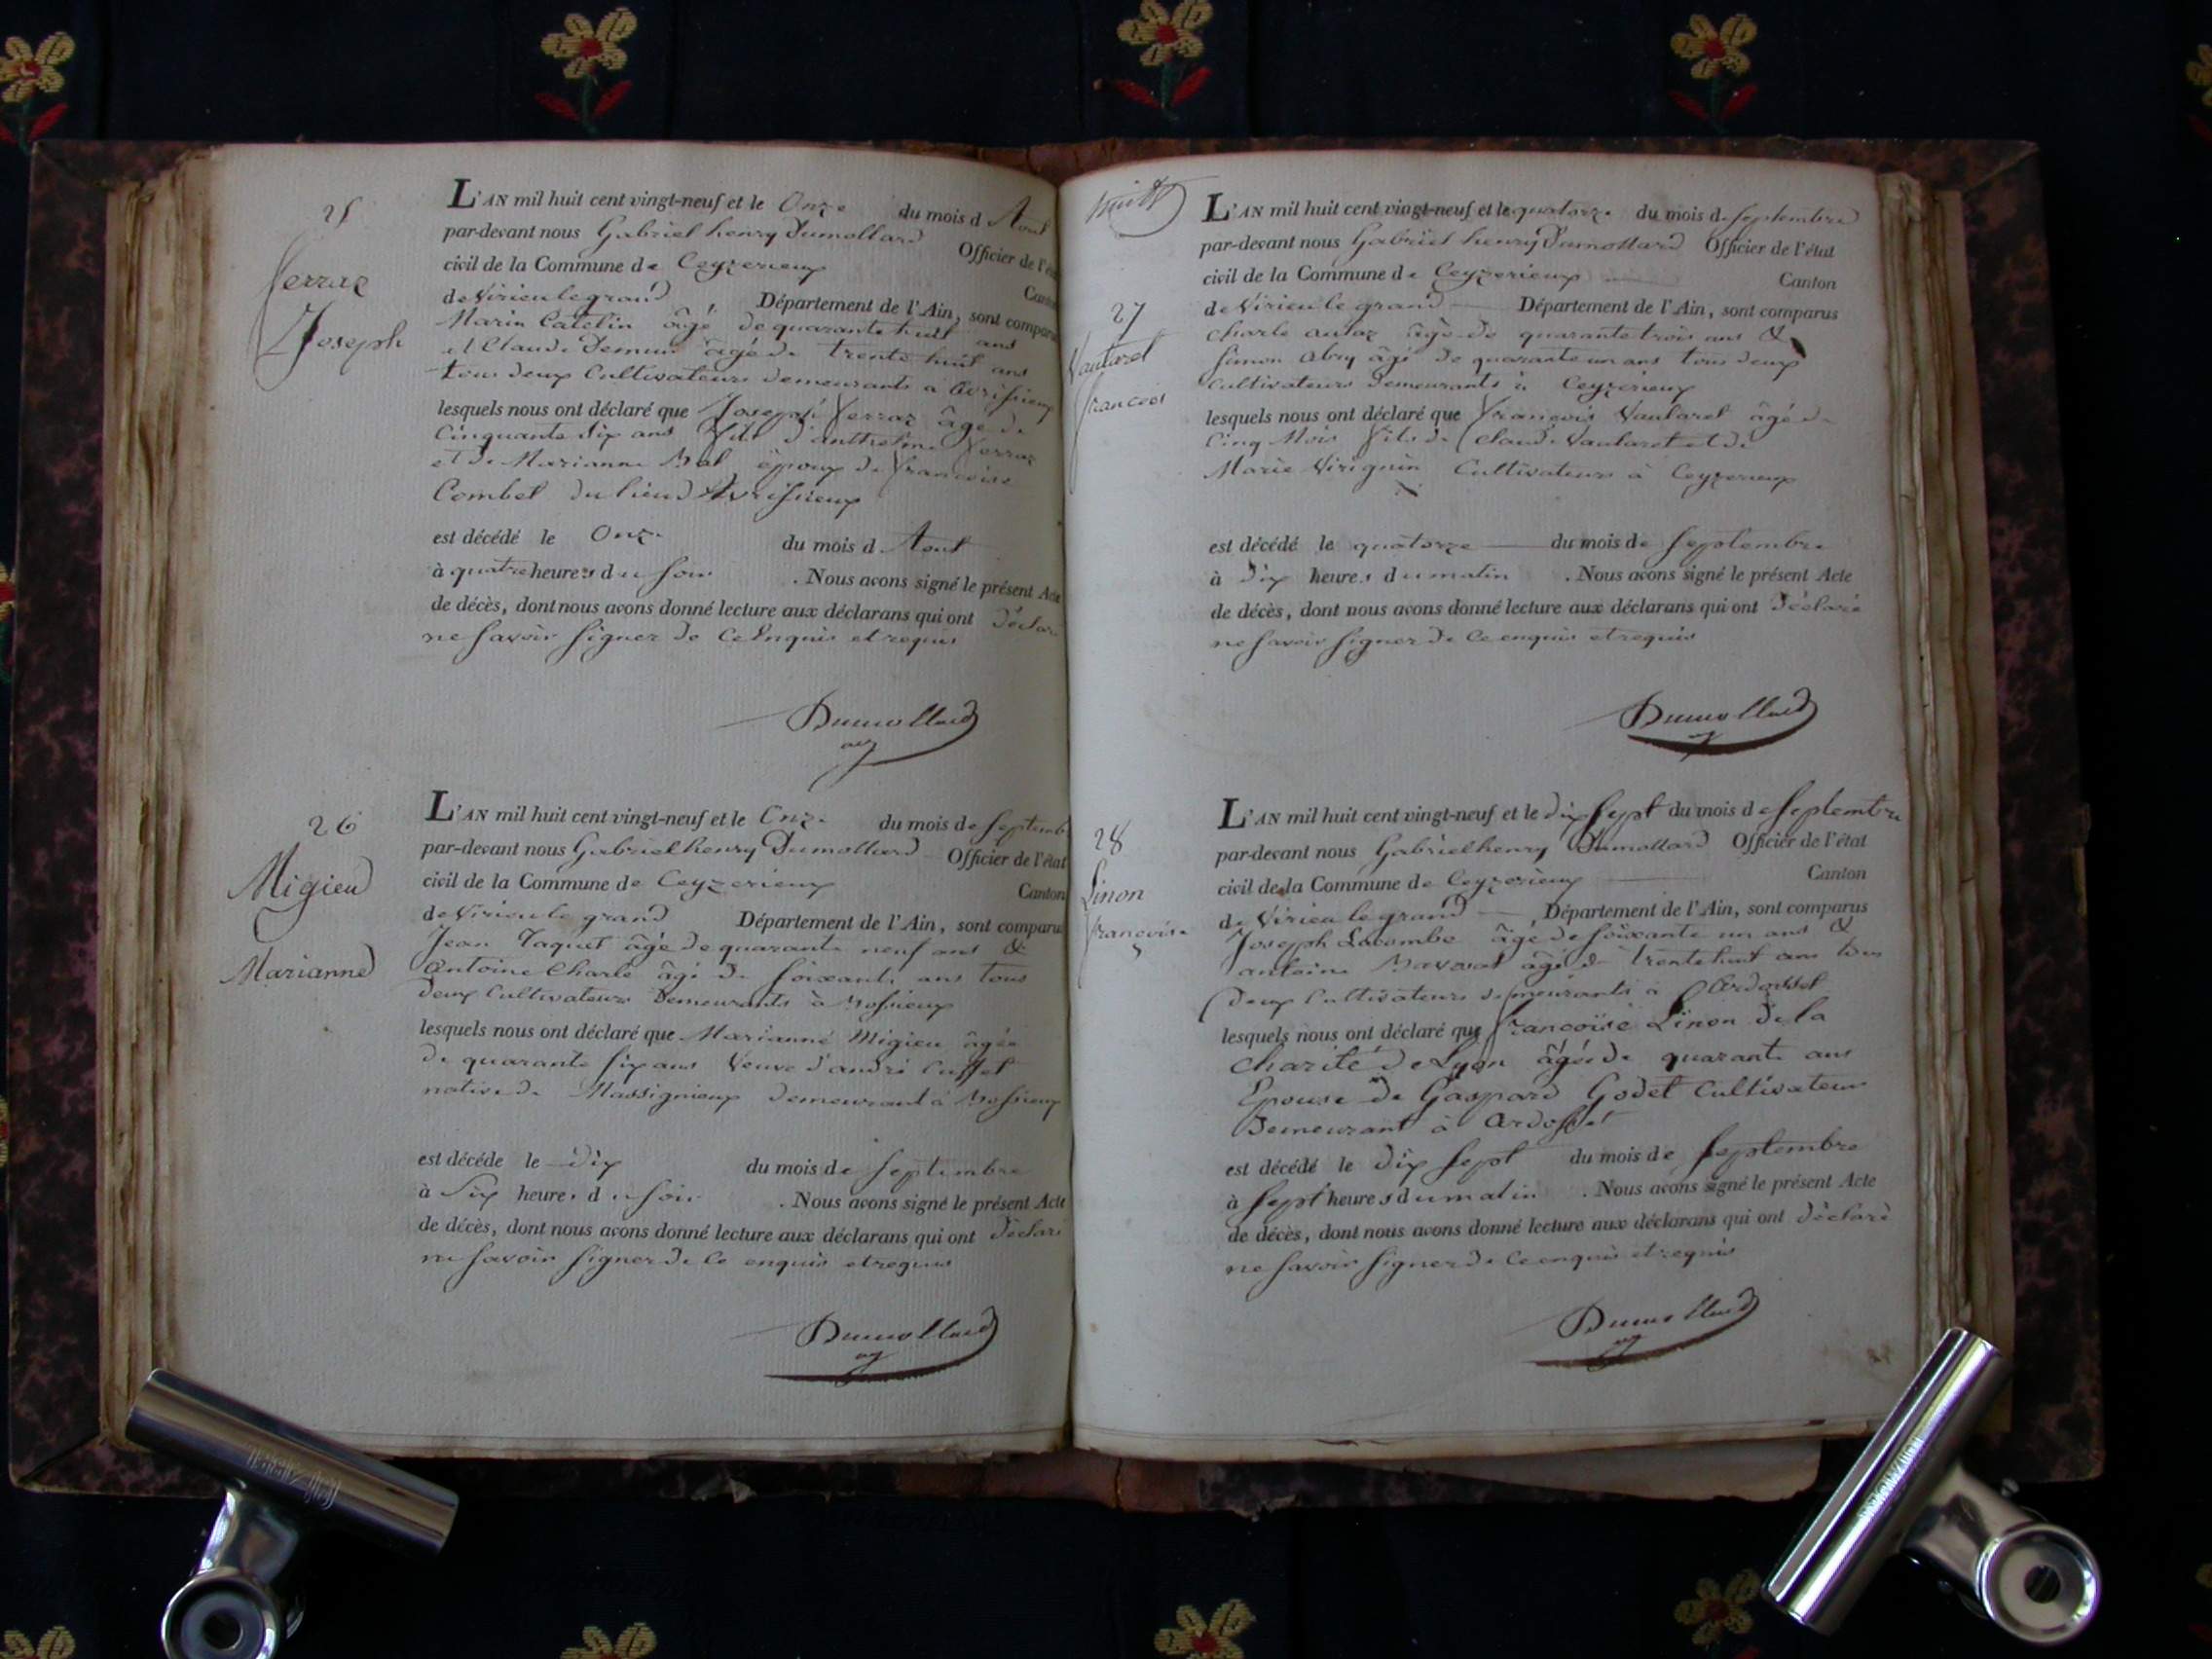 25
Verraz
Joseph
L'AN mil huit cent vingt-neuf et le Onze du mois d Aout
par-devant nous Gabriel henry Dumollard Officier de l'état
civil de la Commune de Ceyzerieux Canton
de Virieu le grand Département de l'Ain, sont comparus
Marin Catelin âgé de quarante huit ans
et Claude Demur âgé de trente huit ans
tous deux Cultivateurs demeurants à Avrissieux
lesquels nous ont déclaré que Joseph Verraz âgé de
Cinquante six ans fils d'anthelme Verraz
et de Marianne Bal époux de françoise
Combet du lieu d'Avrissieux
est décédé le Onze du mois d Aout
à quatre heures du soir . Nous avons signé le présent Acte
de décès, dont nous avons donné lecture aux déclarans qui ont déclaré
ne savoir signer de Ce Enquis et requis
Dumollard
26
Migieu
Marianne
L'AN mil huit cent vingt-neuf et le Onze du mois de Septemb
par-devant nous Gabriel henry Dumollard Officier de l'état
civil de la Commune de Ceyzerieux Canton
de Virieu le grand Département de l'Ain, sont comparus
Jean Taquet âgé de quarante neuf ans &
Antoine Charle âgé de soixante ans tous
deux Cultivateurs Demeurants à Bossieux
lesquels nous ont déclaré que Marianne Migieu âgée
de quarante six ans Veuve d'andré Cusset
native de Massignieux demeurant à Bossieux
est décédé le dix du mois de Septembre
à Six heures du soir . Nous avons signé le présent Acte
de décès, dont nous avons donné lecture aux déclarans qui ont déclaré
ne savoir signer de Ce enquis et requis
Dumollard
huit
27
Vautaret
françois
L'AN mil huit cent vingt-neuf et le quatorze du mois de Septembre
par-devant nous Gabriel henry Dumollard Officier de l'état
civil de la Commune de Ceyzerieux Canton
de Virieu le grand Département de l'Ain, sont comparus
Charle autoz âgé de quarante trois ans &
Simon Abry âgé de quarante un ans tous deux
Cultivateurs demeurants à Ceyzerieux
lesquels nous ont déclaré que François Vautaret âgé de
Cinq Mois fils de Claude Vautaret et de
Marie Virignin Cultivateurs à Ceyzerieux
est décédé le quatorze du mois de Septembre
à dix heures du matin . Nous avons signé le présent Acte
de décès, dont nous avons donné lecture aux déclarans qui ont déclaré
ne savoir signer de Ce enquis et requis
Dumollard
28
Linon
françoise
L'AN mil huit cent vingt-neuf et le dix sept du mois de Septembre
par-devant nous Gabriel henry Dumollard Officier de l'état
civil de la Commune de Ceyzerieux Canton
de Virieu le grand Département de l'Ain, sont comparus
Joseph Lacombe âgé de soixante un ans &
antoine âgé de trente huit ans tous
deux Cultivateurs demeurants à Ardosset
lesquels nous ont déclaré que françoise Linon de la
Charité de Lyon âgée de quarante ans
Epouse de Gaspard Godet Cultivateur
Demeurant à Ardosset
est décédé le dix sept du mois de Septembre
à Sept heures du matin . Nous avons signé le présent Acte
de décès, dont nous avons donné lecture aux déclarans qui ont déclaré
ne savoir signer de Ce enquis et requis
Dumollard